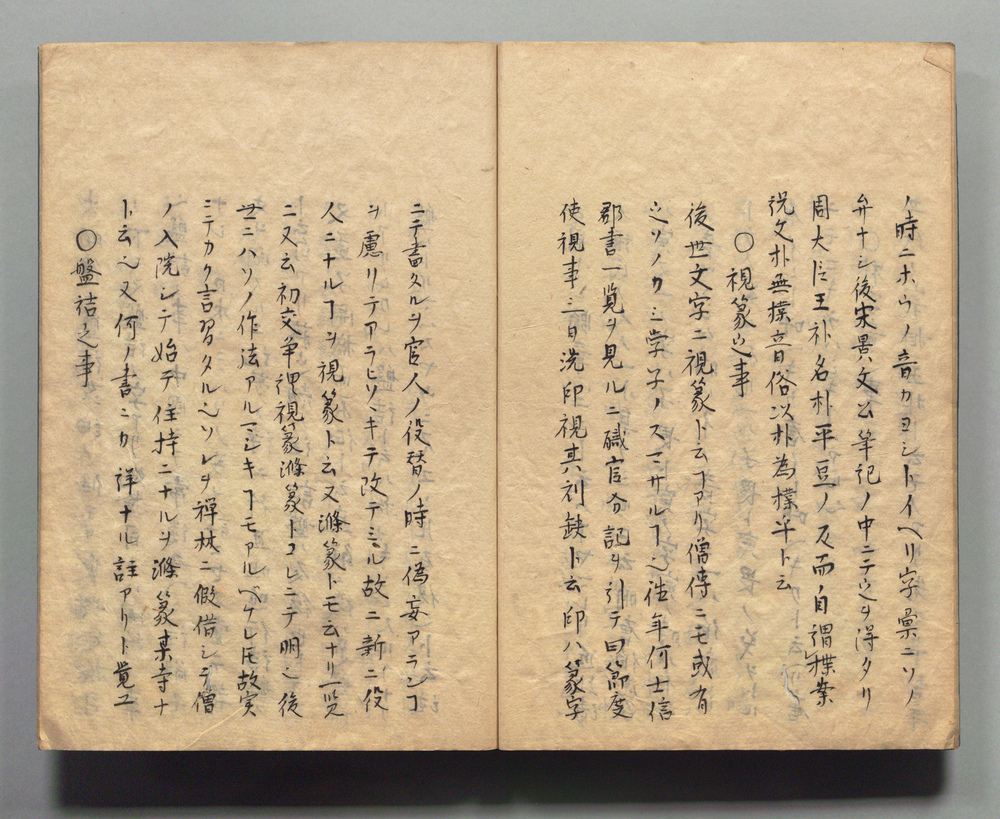 ノ時ニホウノ音カヨシトイヘリ字彙ニソノ
弁ナシ後宋景文公筆記ノ中ニテ之ヲ得タリ
周大臣王朴名朴平豆ノ反而自謂樸案
説文朴無樸音俗以朴為樸乎ト云
○視篆之事
後世文字ニ視篆ト云ヿアリ僧傳ニモ或有
之ソノカミ学子ノスマサルヿ也往年何士信
郡書一覧ヲ見ルニ職官分記ヲ引テ曰節度
使視事三日洗印視其刓缺ト云印ハ篆字
ニテ書タルヲ官人ノ役替ノ時ニ偽妄アランヿ
ヲ慮リテアラヒソヽキテ改テミル故ニ新ニ役
人ニナルヿヲ視篆ト云又滌篆トモ云ナリ一覧
ニ又云初交争裡視篆滌篆トコレニテ明シ後
世ニハソノ作法アルマシキヿモアルベケレ𪜈故実
ニテカク言習タル也ソレヲ禅林ニ假借シテ僧
ノ入院シテ始テ住持ニナルヲ滌篆某寺ナ
ト云也又何ノ書ニカ詳ナル註アリト覚ユ
○盤詰之事